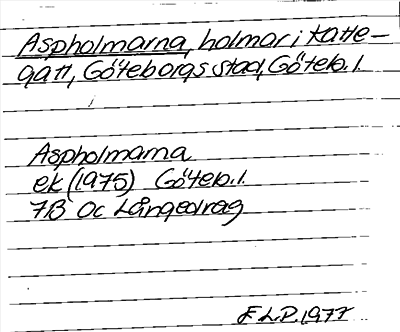 Aspholmarna, holmar i Katte-
gatt, Göteborgs stad, Göteb. l.
Aspholmarna
ek (1975) Göteb. l.
7B 0c Långedrag
F L.D. 1977